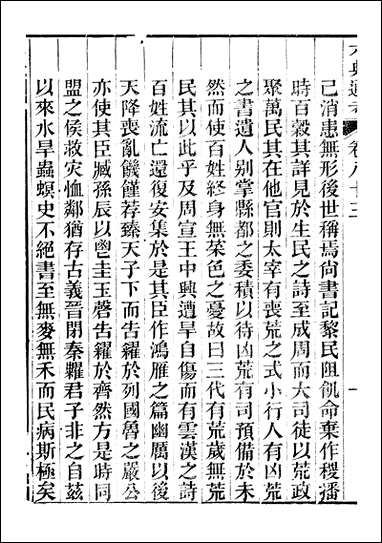 六典通考 卷八十三 一
己消患無形後世稱焉尙書記黎民阻飢命棄作稷播
時百穀其詳見於生民之詩至成周而大司徒以荒政
聚萬民其在他官則太宰有喪荒之式小行人有凶荒
之書遺人別掌縣都之委積以待凶荒有司預備於未
然而使百姓終身無菜色之憂故曰三代有荒歲無荒
民其以此乎及周宣王中興遭旱自傷而有雲漢之詩
百姓流亡還復安集於是其臣作鴻雁之篇幽厲以後
天降喪亂饑饉荐臻天子下而告糴於列國魯之嚴公
亦使其臣臧孫辰以鬯圭玉磬告糴於齊然方是時同
盟之侯救災恤鄰猶存古義晉閉秦糴君子非之自茲
以來水旱蟲螟史不絕書至無麥無禾而民病斯極矣